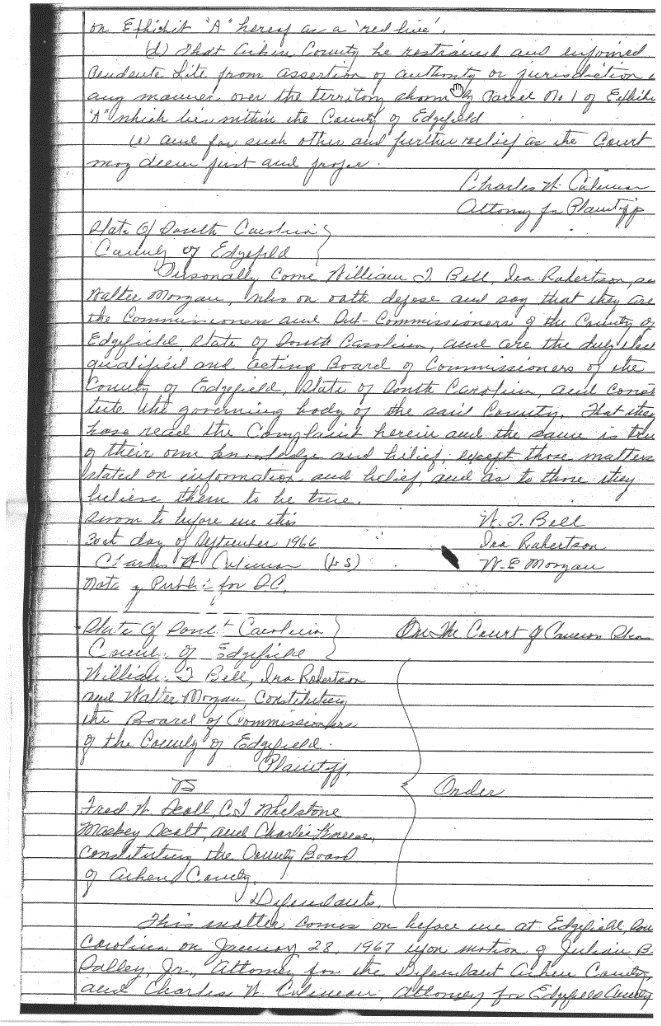 on Exhibit "A" hereof as a 'red line'.
(d) That Aiken County be restrained and enjoined
Pendente Lite from assertion of authority or jurisdiction
any manner over the territory shown by Parcel No 1 of Exhibit
"A" which lies within the County of Edgefield
(e) and for such other and further relief as the Court
may deem just and proper.
Charles W. Coleman
Attorney for Plaintiff
State Of South Carolina
County of Edgefield
Personally come William T. Bell, Ira Robertson, an
Walter Morgan, who on oath depose and say that they are
the Commissioners and Commissioners of the County of
Edgefield State of South Carolina, and are the duly elec
qualified and acting Board of Commissioners of the
County of Edgefield, State of South Carolina, and consti
tute the governing body of the said County. That they
have read the Complaint herein and the same is true
of their own knowledge and belief, except those matters
stated on information and belief, and as to those they
believe them to be true.
Sworn to before me this
30st day of September 1966
Charles W. Coleman (LS)
Notary Public for S.C.
W. T. Bell
Ira Robertson
W. E Morgan
State Of South Carolina
County of Edgefield
On The Court of Common Pleas
William T Bell, Ira Robertson
and Walter Morgan Constituting
the Board of Commissioners
of the County of Edgefield.
Plaintiff,
VS
Order
Fred W. Scott, C. T. Whetstone
Scott, and Charlie
Constituting the County Board
of Aiken County,
Defendants.
This matter comes on before me at Edgefield, Sou
Carolina on January 28, 1967 upon motion of Julian B.
Salley, Jr., Attorney for the Defendant Aiken County,
and Charles W. Coleman, Attorney for Edgefield County